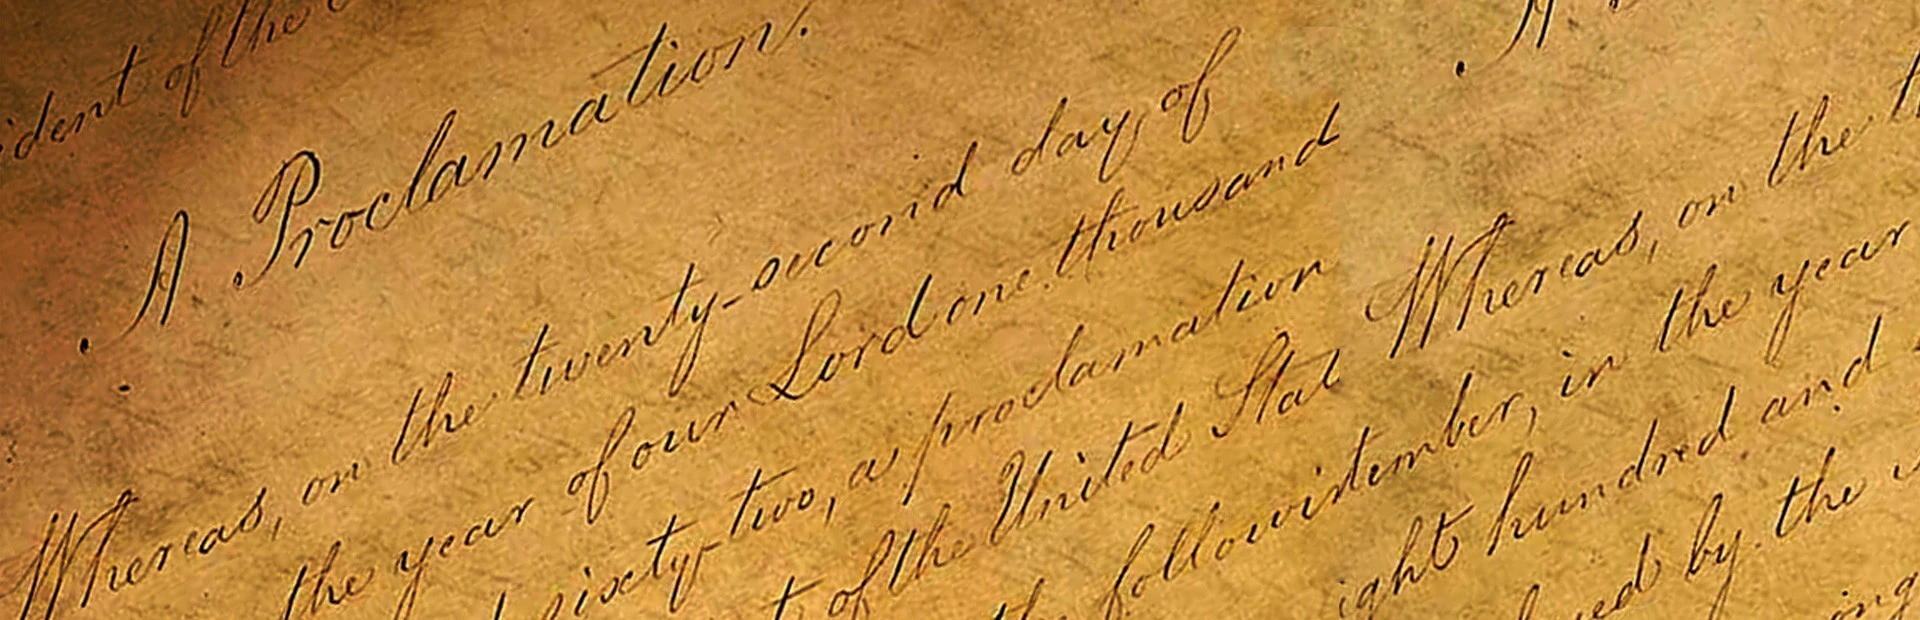 ident of the
A Proclamation.
Whereas, on the twenty-second day of
the year of our Lord one thousand
sixty two, a proclamation
t of the United Stat
the followistember, in the year
A
Whereas, on the t
ight hundred and
ued by the
ing